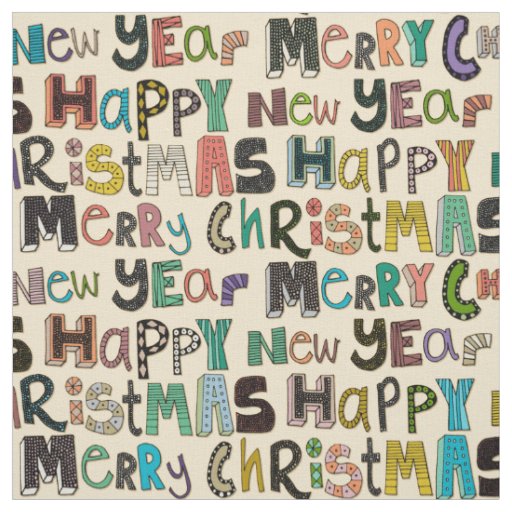 New YEar MERRY CH
S HAPPY New YEar
HRiStMAS HAPPY N
MeRRy CHRiStMAS
New YEar MERRY CH
S HAPPY New YEar
HRiStMAS HAPPY N
MeRRy CHRiStMAS